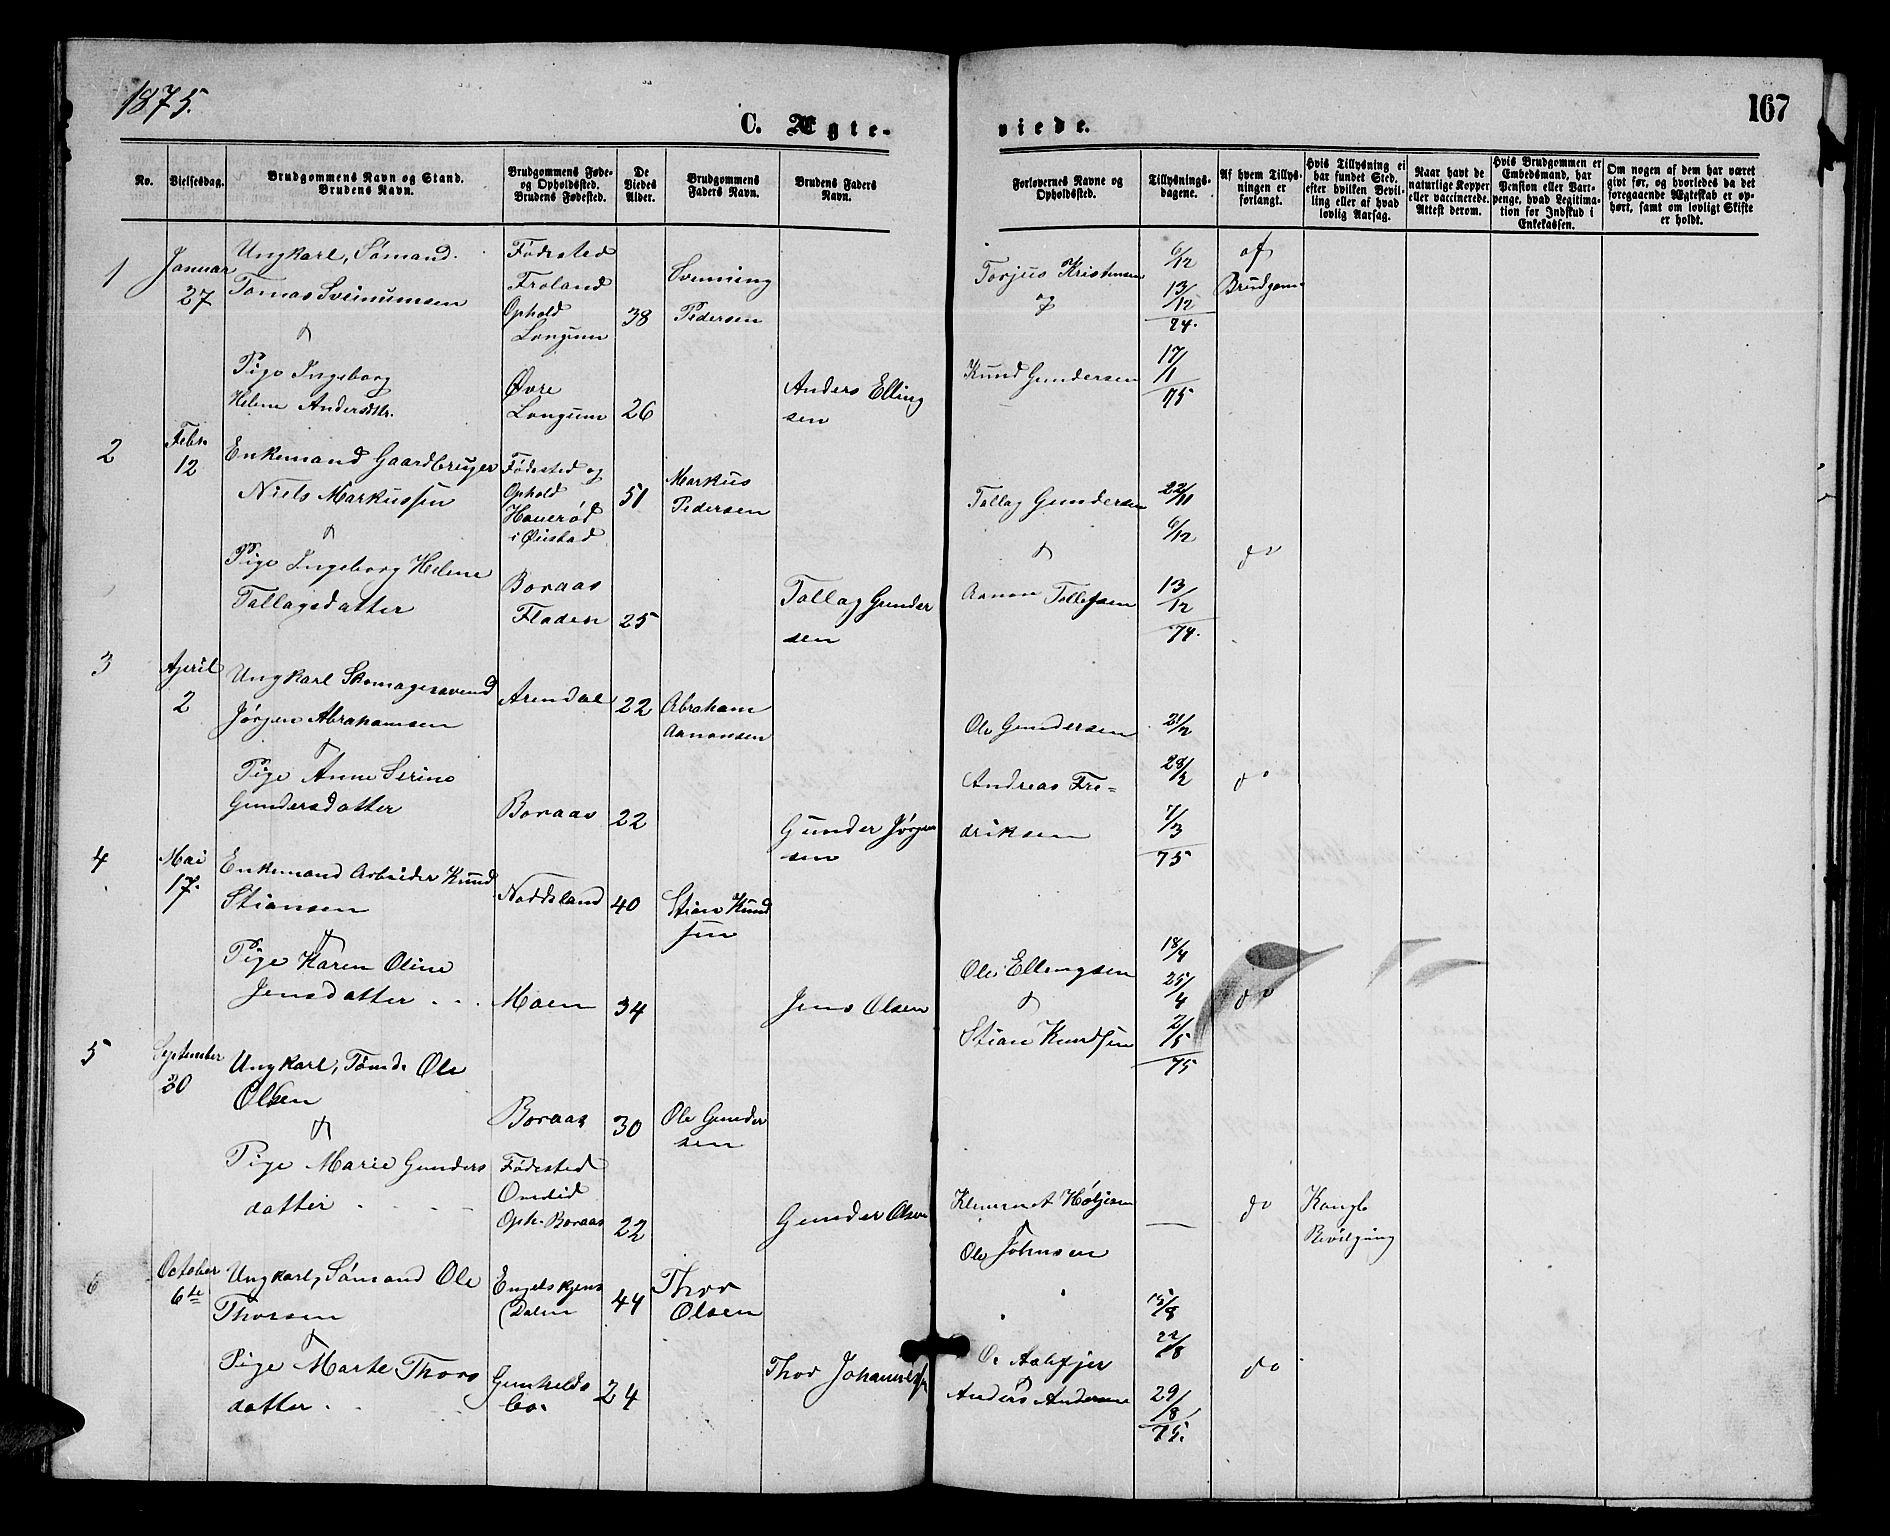 1875.
167
C. Ægte-
viede.
No.
Vielsesdag.
Brudgommens Navn og Stand.
Brudens Navn.
Brudgommens Føde-
og Opholdssted.
Brudens Fødested.
De
Viedes
Alder.
Brudgommens
Faders Navn.
Brudens Faders
Navn.
Forlovernes Navne og
Opholdssted.
Tillysnings-
dagene.
Af hvem Tillys-
ningen er
forlangt.
Hvis Tillysning ei
har fundet Sted,
efter hvilken Bevil-
ling eller af hvad
lovlig Aarsag.
Naar havt de
naturlige Kopper
eller vaccinerede.
Attest derom.
Hvis Brudgommen er
Embedsmand, har
Pension eller Vart-
penge, hvad Legitima-
tion for Indskud i
Enkekassen.
Om nogen af dem har været
givt før, og hvorledes da det
foregaaende Ægteskab er op-
hørt, samt om lovligt Skifte
er holdt.
1
Januar
27
Ungkarl, Sømand
Tomas Sveinumsen
Pige Ingeborg
Helene Andersdtr.
Fødested
Froland
Ophold
Longum
Øvre
Longum
38
26
Svenning
Pedersen
Anders Elling
sen
Torjus Kristensen
og
Knud Gundersen
6/12
13/12
74.
17/1
75
af
Brudgom
2
Febr.
12
Enkemand Gaardbruger
Niels Markussen
Pige Ingeborg Helene
Tallagsdatter
Fødested og
Ophold
i Øiestad
Boraas
Fladen
51
25
Markus
Pedersen
Tallag Gunder
sen
Tallag Gundersen
Aanon Tollefsen
22/11
6/12
13/12
74.
do
3
April
2
Ungkarl Skomagersvend
Jørgen Abrahamsen
Pige Anne Serine
Gundersdatter
Arendal
Boraas
22
22
Abraham
Aanonsen
Gunder Jørgen
sen
Ole Gundersen
Andreas Fre-
driksen
21/2
28/2
7/3
75
do
4
Mai
17.
Enkemand Arbeider Knud
Stiansen
Pige Karen Oline
Jensdatter
Noddeland
Moen
40
34
Stian Knud
sen
Jens Olsen
Ole Ellingsen
Stian Knudsen
18/4
25/4
2/5
75
do
5
September
30
Ungkarl, Tømd. Ole
Olsen
Pige Marie Gunders
datter
Boraas
Fødested
Oph. Boraas
30
22
Ole Gunder
sen
Gunder Olsen
Klemmet Høljesen
Ole Johnsen
do
Kongl.
Bevilgning
6
October
6te
Ungkarl, Sømand Ole
Thorsen
Pige Marte Thors
datter
Engelskjøns
Dalen
Gunhilds
bo.
44
24
Thor
Olsen
Thor Johannes
O. Aalefjer
Anders Andersen
15/8
22/8
29/8
75.
do